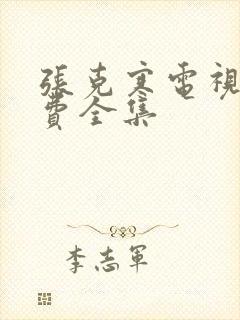 張克寒電視
費全集
李志軍